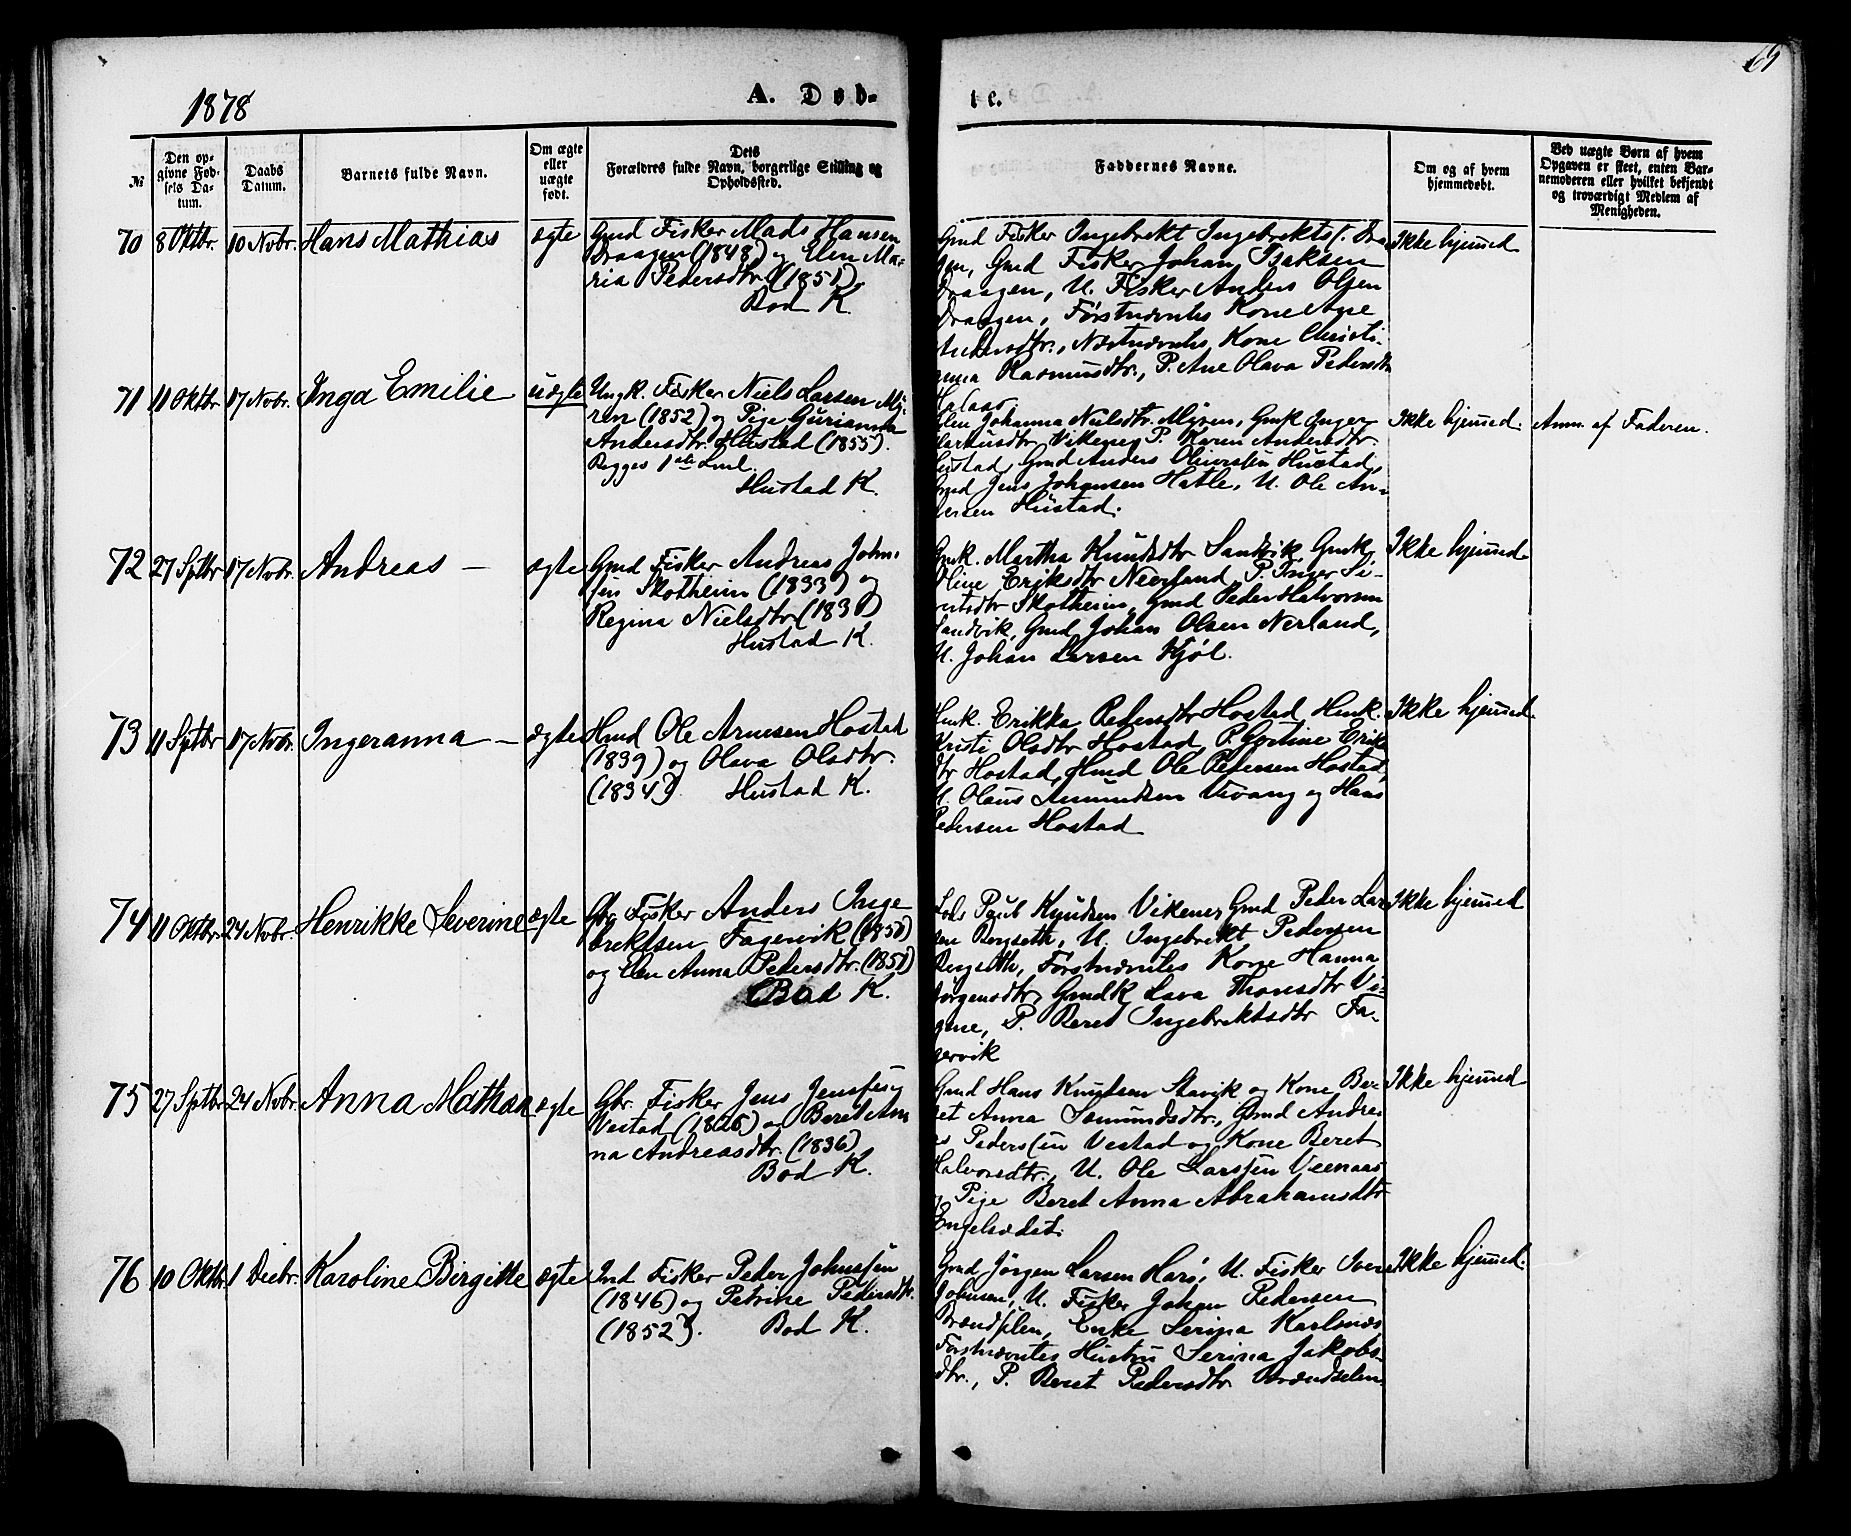 69
1878
A. Døb-
te.
№
Den op-
givne Fød-
sels Da-
tum.
Daabs
Datum.
Barnets fulde Navn.
Om ægte
eller
uægte
født.
Dets
Forældres fulde Navn, borgerlige Stilling og
Opholdssted.
Faddernes Navne.
Om og af hvem
hjemmedøbt.
Ved uægte Børn af hvem
Opgaven er skeet, enten Bar-
nemoderen eller hvilket bekjendt
og troværdigt Medlem af
Menigheden.
70 8 Oktbr. 10 Novbr. Hans Mathias ægte
Gmd Fisker Mads Hansen
Draagen (1848) og Elen Ma-
ria Pedersdtr. (1851)
Bod K.
Gmd Fisker Ingebrekt Ingebrektsf. Draa
gen, Gmd Fisker Johan Isaksen
Draagen, U. Fisker Anders Olsen
Draagen, Førstnævntes Kone Ane
Andersdtr., Næstnævntes Kone Christi-
Rasmusdtr., P. Ane Olava Pedersdtr
Ikke hjemmed
71 11 Oktbr 17 Novbr. Inga Emilie uægte
Ungk. Fisker Niels Larsen My-
ren (1852) og Pige Gurianna
Andersdtr. Hustad (1855).
Begges 1ste Leml.
Hustad K.
Elen Johanna Nielsdtr. Myren, Gmk Inger
Vikenes P. Karen Andersdtr.
Hustad, Gmd Anders Oliversen Hustad,
Gmd Jens Johansen Hatle, U. Ole An-
dersen Hustad.
Ikke hjemmed.
Anm. af Faderen.
72 27 Sptbr 17 Novbr. Andreas —
ægte
Gmd Fisker Andreas John-
sen Skotheim (1833) og
Regina Nielsdtr (1831)
Hustad K.
Gmk. Martha Knudsdtr Sandvik, Gmk
Oline Eriksdtr Nerland, P. Inger Si-
vertsdtr Skotheim, Gmd Peder Halvorsen
Sandvik, Gmd Johan Olsen Nerland,
U. Johan Larsen Kjøl.
Ikke hjemmed
73 11 Sptbr 17 Novbr. Ingeranna —
ægte
Hmd Ole Arnesen Hostad
(1839) og Olava Olsdtr.
(1834). Hustad K.
Hmk. Erikka Pedersdtr Hostad, Hmk.
Kristi Olsdtr Hostad, P. Gortine Eriks
dtr Hostad, Hmd Ole Pedersen Hostad,
U. Olaus Amundsen Urvang og Hans
Pedersen Hostad
Ikke hjemmed.
74 11 Oktbr. 24 Novbr. Henrikke Severine ægte
Gbr Fisker Anders Inge
brektsen Fagervik (1850)
og Elen Anna Pedersdtr. (1851)
Bod K.
Lods Poul Knudsen Vikenes Gmd Peder Lar
sen Bergseth, U. Ingebrikt Pedersen
Bergseth, Førstnævntes Kone Hanna
Jørgensdtr, Gmdk Lava Thomsdtr Vi-
kene, P. Beret Ingebrektsdtr Fa-
gervik
Ikke hjemmed
75 27 Sptbr 24 Novbr. Anna Mathea ægte
Gbr. Fisker Jens Jensen
Vestad (1826) og Beret An
na Andreasdtr. (1836)
Bod K.
Gmd Hans Knudsen Stavik og Kone Be-
ret Anna Samundsdtr., Gmd Andre-
as Pedersen Vestad og Kone Beret
Halvorsdtr., U. Ole Larssen Veenaas
og Pige Beret Anna Abrahamsdtr
Engelsædet.
Ikke hjemmed
76 10 Oktbr. 1 Decbr. Karoline Birgitte ægte
Ind Fisker Peder Johnssen
(1846) og Petrine Pedersdtr.
(1852). Bod K.
Gmd Jørgen Larsen Harø, U. Fisker Iver
Johnsen, U. Fisker Johan Pedersen
Brændslen, Enke Serina Karlsnæs
Førstnævntes Hustru Serina Jakobs-
dtr., P. Beret Pedersdtr Brændselen.
Ikke hjemmed.